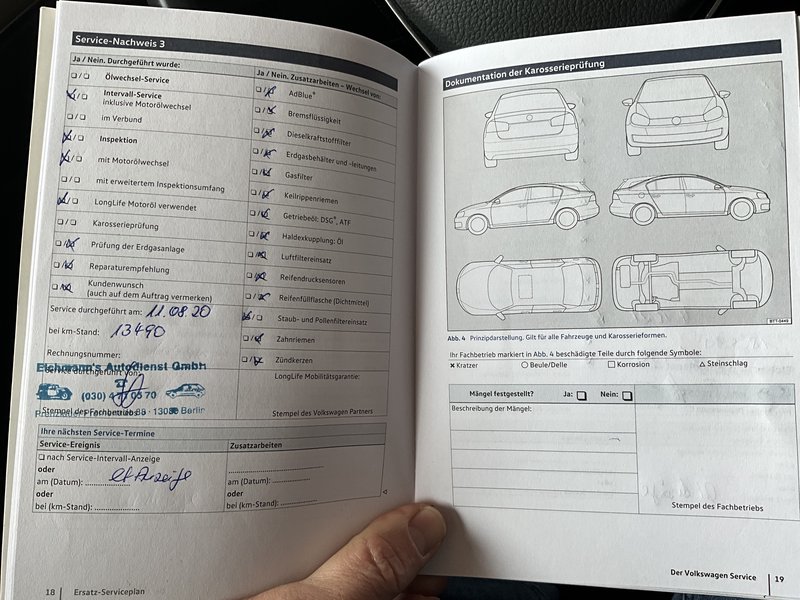 Service-Nachweis 3
Ja / Nein. Durchgeführt wurde:
Ölwechsel-Service
Intervall-Service
inklusive Motorölwechsel
im Verbund
Inspektion
mit Motorölwechsel
mit erweitertem Inspektionsumfang
LongLife Motoröl verwendet
Karosserieprüfung
Prüfung der Erdgasanlage
Reparaturempfehlung
Kundenwunsch
(auch auf dem Auftrag vermerken)
Service durchgeführt am: 11.08.20
bei km-Stand: 13490
Rechnungsnummer:
Service durchgeführt von:
Eichmann's Autodienst GmbH
(030)
Stempel des Fachbetriebs
Berlin
Ja / Nein. Zusatzarbeiten – Wechsel von:
AdBlue®
Bremsflüssigkeit
Dieselkraftstofffilter
Erdgasbehälter und -leitungen
Gasfilter
Keilrippenriemen
Getriebeöl: DSG®, ATF
Haldexkupplung: Öl
Luftfiltereinsatz
Reifendrucksensoren
Reifenfüllflasche (Dichtmittel)
Staub- und Pollenfiltereinsatz
Zahnriemen
Zündkerzen
LongLife Mobilitätsgarantie:
Stempel des Volkswagen Partners
Ihre nächsten Service-Termine
Service-Ereignis
nach Service-Intervall-Anzeige
oder
am (Datum): lt Anzeige
oder
bei (km-Stand):
Zusatzarbeiten
am (Datum):
oder
bei (km-Stand):
18 | Ersatz-Serviceplan
Dokumentation der Karosserieprüfung
BTT-0449
Abb. 4 Prinzipdarstellung. Gilt für alle Fahrzeuge und Karosserieformen.
Ihr Fachbetrieb markiert in Abb. 4 beschädigte Teile durch folgende Symbole:
× Kratzer ○ Beule/Delle □ Korrosion △ Steinschlag
Mängel festgestellt? Ja: □ Nein: □
Beschreibung der Mängel:
Stempel des Fachbetriebs
Der Volkswagen Service | 19